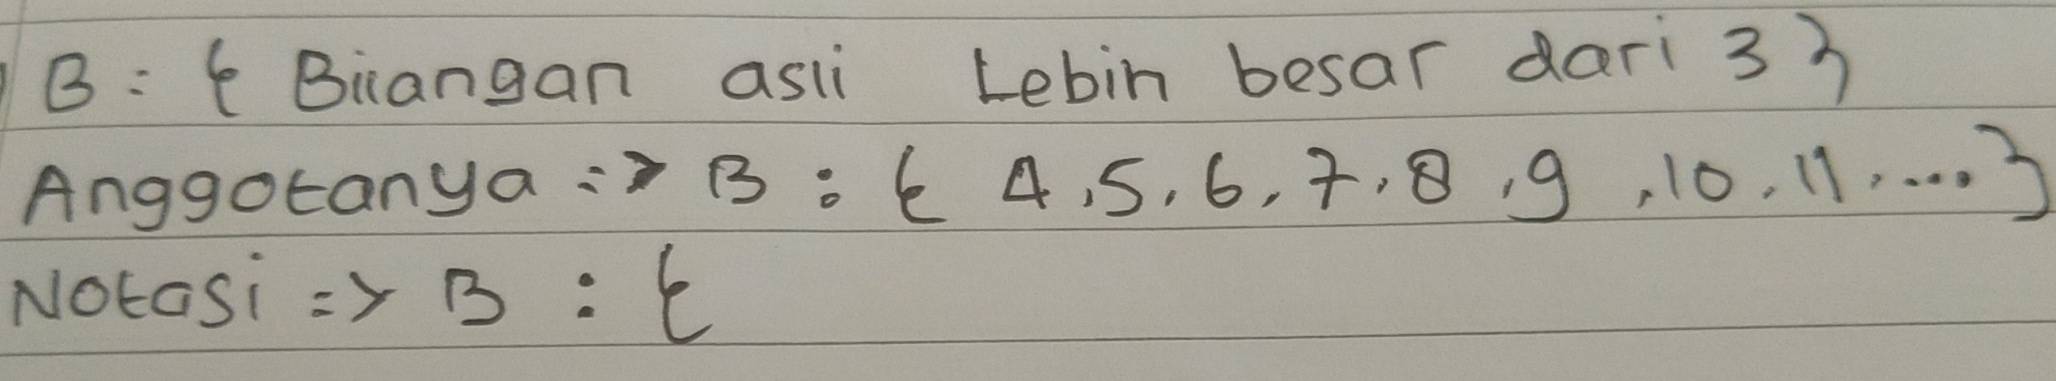 B = { Bilangan asli Lebih besar dari 3 }
Anggotanya => B : { 4, 5, 6, 7, 8, 9, 10, 11, .... }
Notasi => B : {